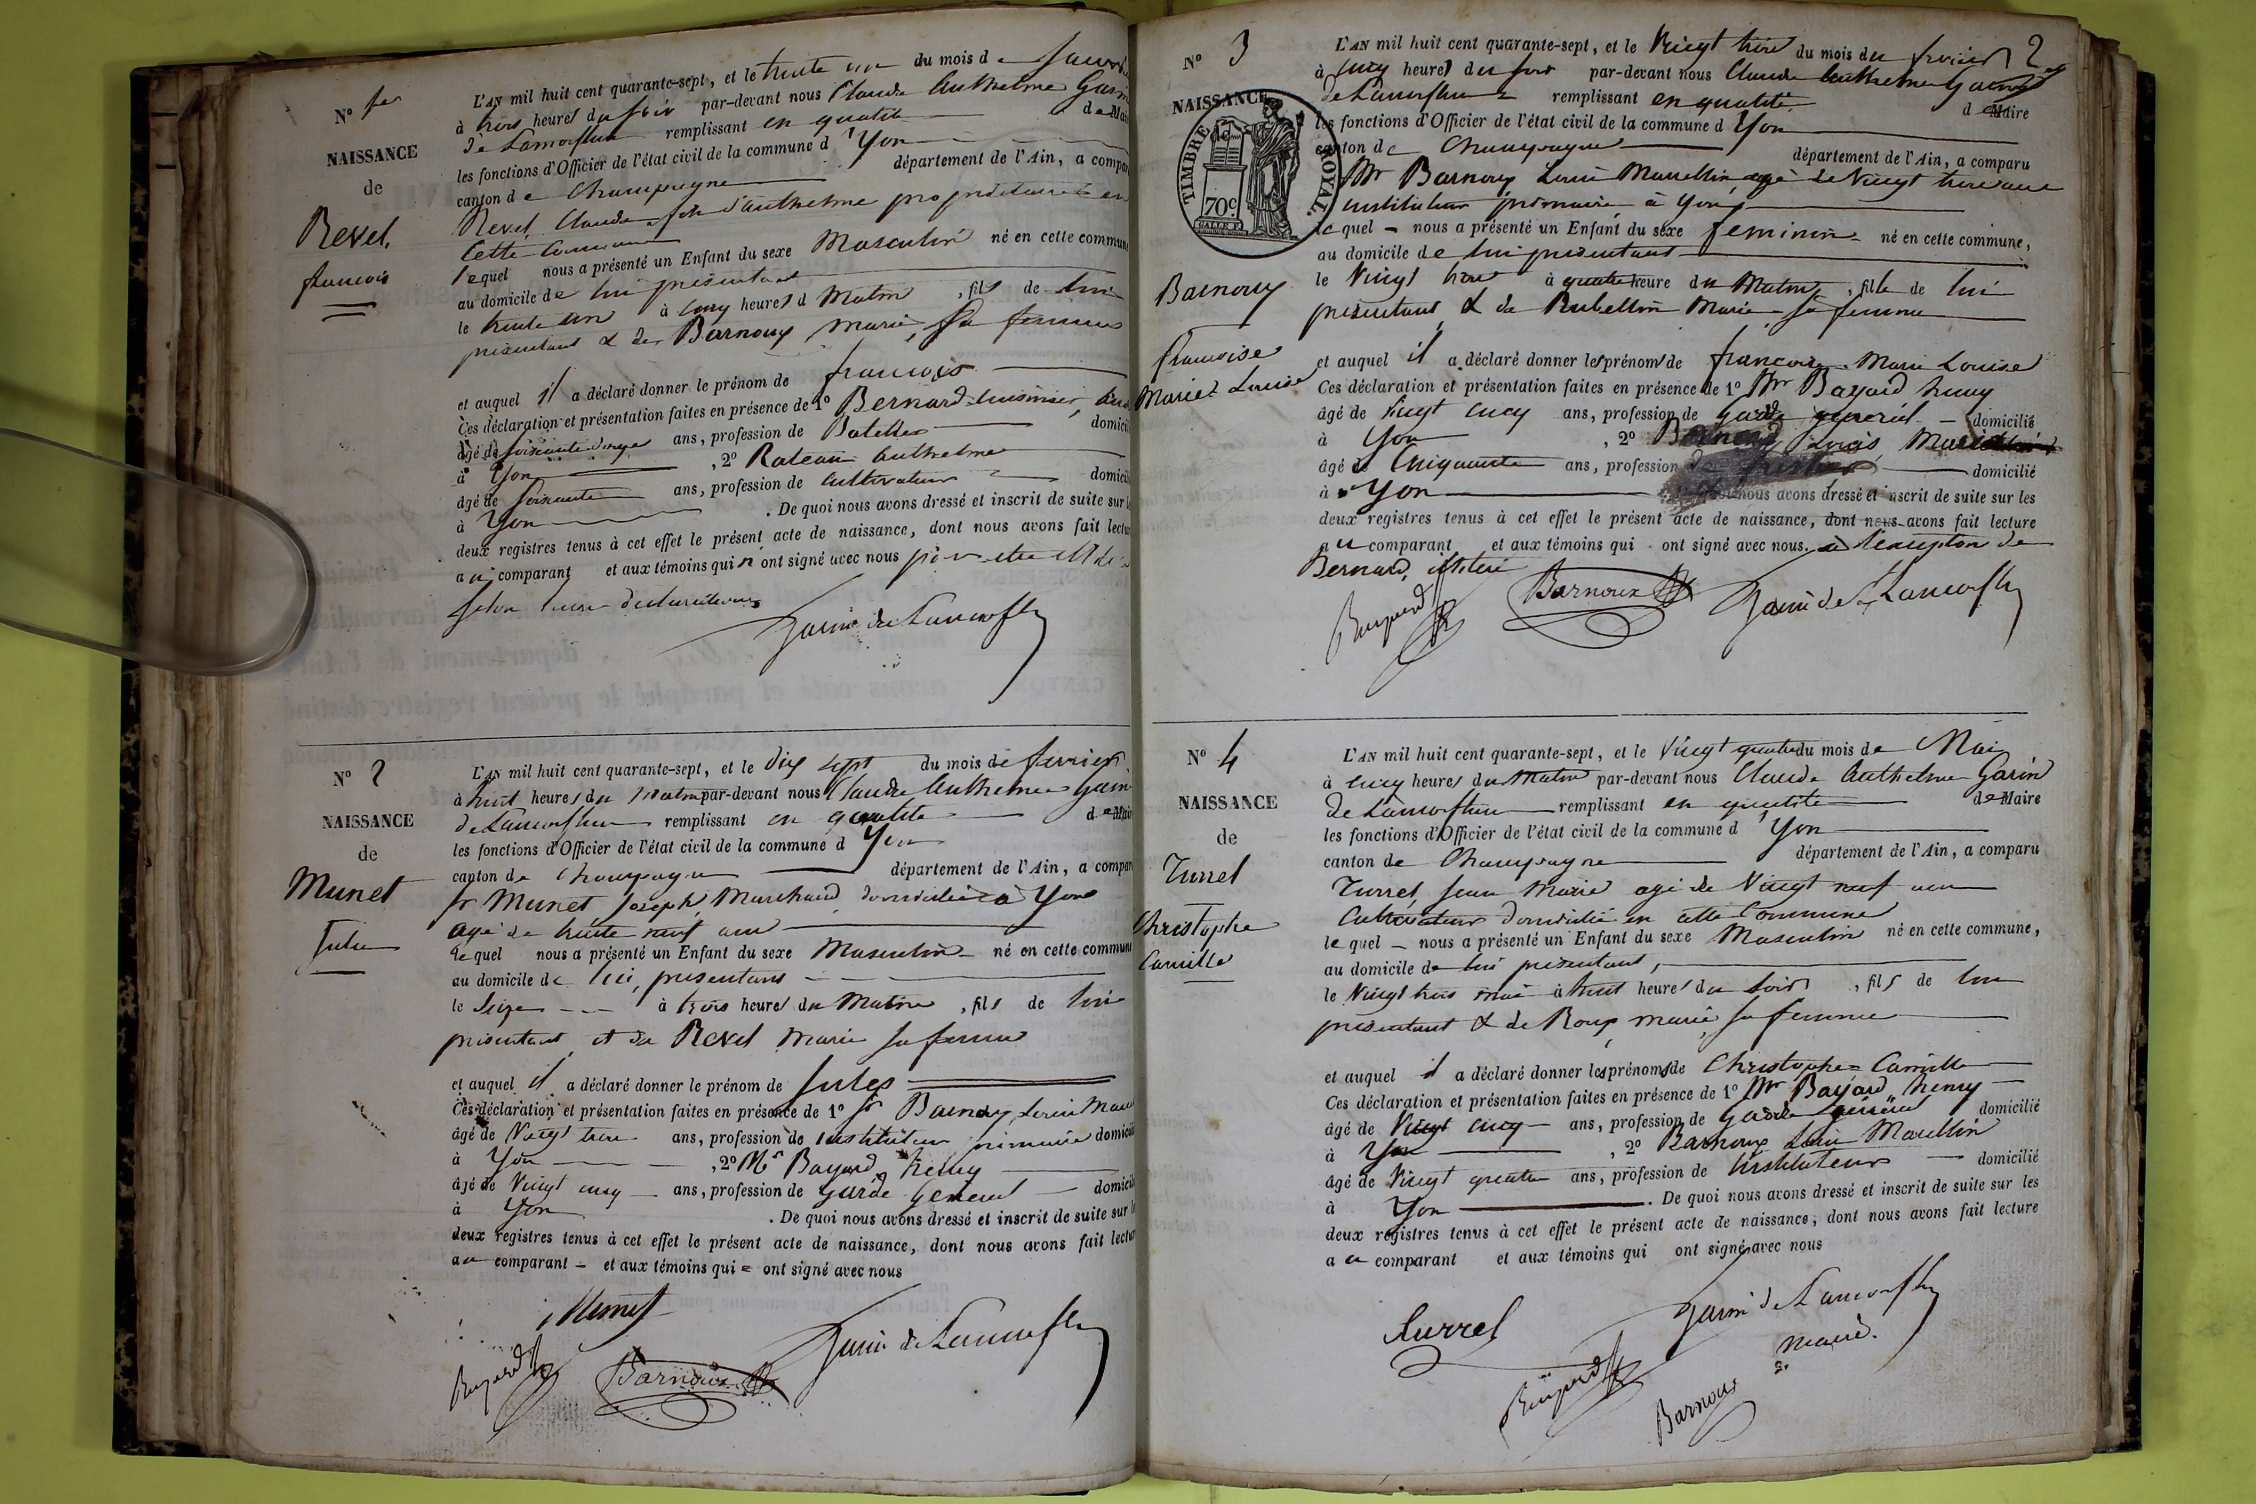 N° 1er
NAISSANCE
de
Revel,
francois
L'AN mil huit cent quarante-sept, et le trente un du mois de
à trois heures du soir par-devant nous Claude Anthelme Garin
de Lamorthe remplissant en qualité de Maire
les fonctions d'Officier de l'état civil de la commune d'Yon
canton de Champagne département de l'Ain, a comparu
Revel, Claude fils d'anthelme propriétaire en
cette commune
lequel nous a présenté un Enfant du sexe Masculin né en cette commune
au domicile de lui présentant
le trente un à cinq heures d Matin, fils de lui
présentant & de Barnoux marie, sa femme
et auquel il a déclaré donner le prénom de francois
Ces déclaration et présentation faites en présence de 1° Bernard
âgé de ans, profession de Batelier domicilié
à Yon, 2° Rateau Anthelme
âgé de soixante ans, profession de cultivateur domicilié
à Yon. De quoi nous avons dressé et inscrit de suite sur les
deux registres tenus à cet effet le présent acte de naissance, dont nous avons fait lecture
au comparant et aux témoins qui n'ont signé avec nous
selon leur déclaration
N° 2
NAISSANCE
de
Munet
Jules
L'AN mil huit cent quarante-sept, et le dix sept du mois de fevrier
à huit heures du matin par-devant nous Claude Anthelme Garin
de Lamorthe remplissant en qualité de Maire
les fonctions d'Officier de l'état civil de la commune d Yon
canton de Champagne département de l'Ain, a comparu
sr Munet, Joseph, Marchand, domicilié à Yon
agé de trente neuf ans
lequel nous a présenté un Enfant du sexe Masculin né en cette commune
au domicile de lui, présentant
le seize à trois heures du Matin, fils de lui
présentant et de Revel Marie sa femme
et auquel il a déclaré donner le prénom de Jules
Ces déclaration et présentation faites en présence de 1° sr Barnoux, Louis
âgé de Vingt trois ans, profession de instituteur primaire domicilié
à Yon, 2° Mr Bayard, henry
âgé de Vingt cinq ans, profession de garde général domicilié
à Yon. De quoi nous avons dressé et inscrit de suite sur les
deux registres tenus à cet effet le présent acte de naissance, dont nous avons fait lecture
au comparant et aux témoins qui ont signé avec nous
Munet
Bayard Barnoux
N° 3
NAISSANCE
TIMBRE ROYAL
70c
Barnoux
francoise
Marie Louise
2
L'AN mil huit cent quarante-sept, et le Vingt trois du mois du fevrier
à cinq heures du soir par-devant nous Claude Anthelme Garin
de Lamorthe remplissant en qualité de Maire
les fonctions d'Officier de l'état civil de la commune d Yon
canton de Champagne département de l'Ain, a comparu
Mr Barnoux Louis Marcellin, agé de Vingt trois ans
instituteur primaire, à Yon
lequel nous a présenté un Enfant du sexe feminin né en cette commune,
au domicile de lui présentant
le Vingt trois à quatre heure du Matin, fille de lui
présentant & de Rubellin Marie sa femme
et auquel il a déclaré donner les prénoms de francoise Marie Louise
Ces déclaration et présentation faites en présence de 1° Mr Bayard henry
âgé de Vingt cinq ans, profession de garde general domicilié
à Yon, 2° Louis
âgé de Cinquante ans, profession domicilié
à Yon nous avons dressé et inscrit de suite sur les
deux registres tenus à cet effet le présent acte de naissance, dont nous avons fait lecture
au comparant et aux témoins qui ont signé avec nous. à l'exception de
Bernard, illitéré
Bayard Barnoux
N° 4
NAISSANCE
de
Turrel
Christophe
Camille
L'AN mil huit cent quarante-sept, et le Vingt quatre du mois de Mai
à cinq heures du Matin par-devant nous Claude Anthelme Garin
de Lamorthe remplissant en qualité de Maire
les fonctions d'Officier de l'état civil de la commune d'Yon
canton de Champagne département de l'Ain, a comparu
Turrel, Jean Marie agé de Vingt neuf ans
Cultivateur domicilié en cette Commune
lequel nous a présenté un Enfant du sexe Masculin né en cette commune,
au domicile de lui présentant,
le Vingt trois mai à huit heures du soir, fils de lui
présentant & de Roux, marie, sa femme
et auquel il a déclaré donner les prénoms de Christophe Camille
Ces déclaration et présentation faites en présence de 1° Mr Bayard, henry
âgé de Vingt cinq ans, profession de Garde général domicilié
à Yon, 2° Barnoux Louis Marcellin
âgé de Vingt quatre ans, profession de instituteur domicilié
à Yon. De quoi nous avons dressé et inscrit de suite sur les
deux registres tenus à cet effet le présent acte de naissance, dont nous avons fait lecture
au comparant et aux témoins qui ont signé avec nous
Turrel
maire.
Bayard Barnoux